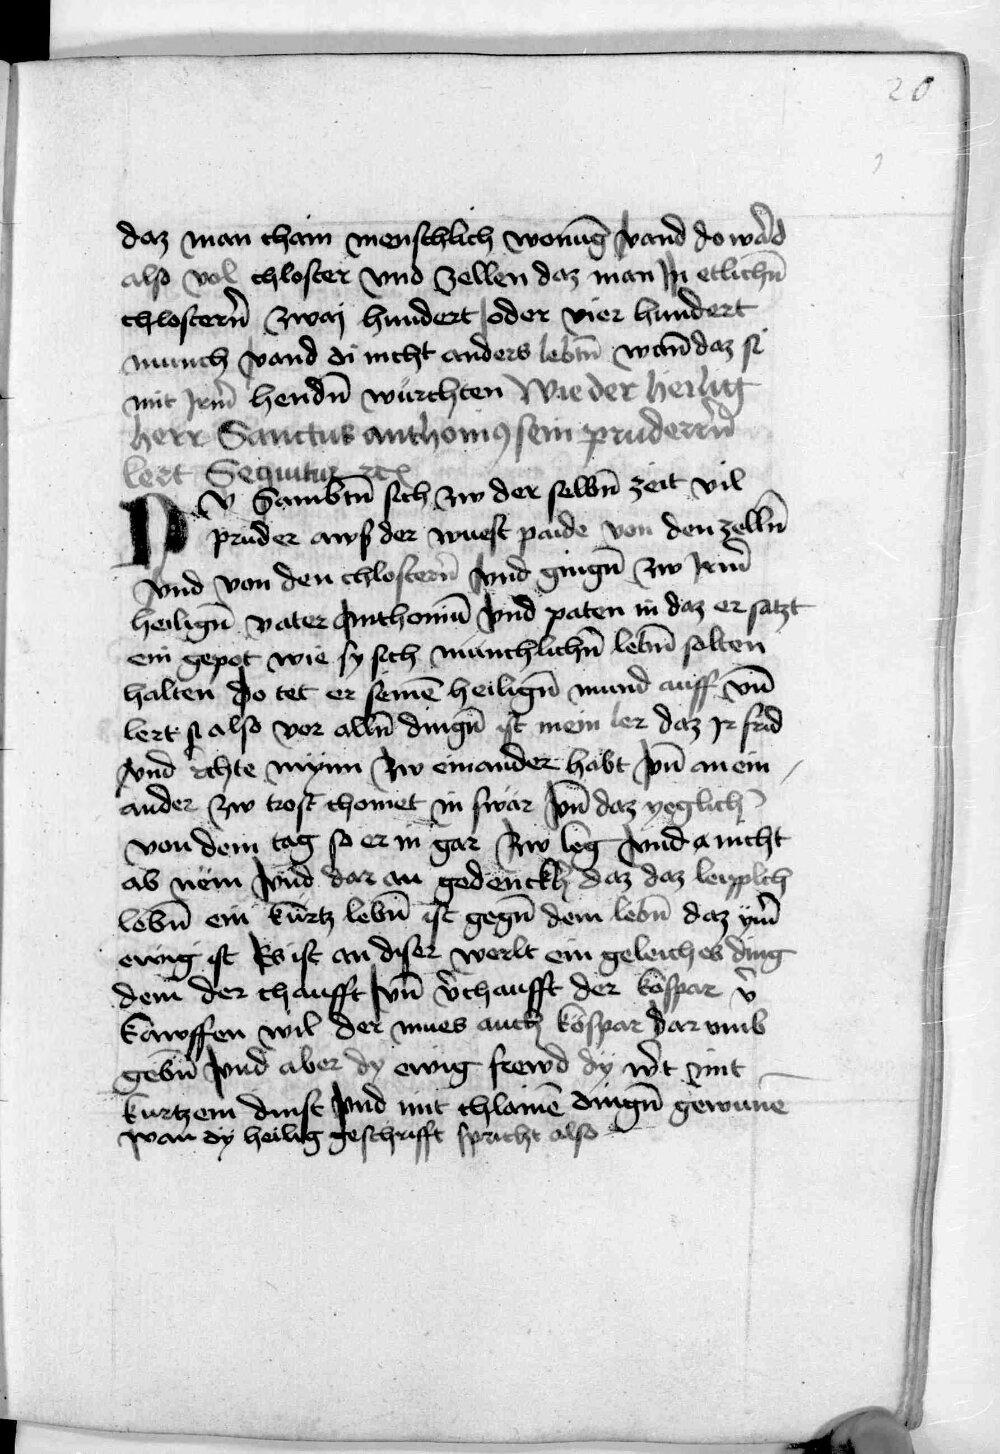 20
daz man chain menschlich wonūg vand do ward
also vol chloster vnd zellen daz man In etlichn̄
chlostern̄ zwaj hundert oder vier hundert
munch vand di nicht anders lebtn̄ wan̄ daz si
mit Irm̄ hendn̄ würchten Wie der heilig
herr Sanctus anthoniꝯ sein prudern̄
lert Sequitur ⁊c̄
Dv Sambtn̄ sich zw der selbn̄ zeit vil
pruder aws der wuest paide von den zelln̄
vnd von den chlostern̄ vnd gingn̄ zw Irm̄
heilign̄ vater Anthoniū vnd paten in daz er satzt
ein gepot wie sy sich münchlichn̄ lebn̄ solten
halten do tet er seinē heilign̄ mund auff vn̄
lert si also vor alln̄ dingn̄ ist mein ler daz Ir frid
vnd rechte mynn zw einander habt vn̄ an ein
ander zw trost chomet in swär vn̄ daz yeglich̄
von dem tag so er in gar zw leg vnd a nicht
ab nëm vnd dar an gedenckh̄ daz daz leyplich
lebn̄ ein kurtz lebn̄ ist gegn̄ dem lebn̄ daz ym̄
ewig ist Es ist an diser werlt ein geleiches ding
dem der chaufft vn̄ v̄chaufft der kospar v̄
kawffen wil der mues auch kospar dar vmb
gebn̄ vnd aber dy ewig frewd dy wt̄ mit
kurtzem dinst vnd mit chlainē dingn̄ gewunē
wan dy heilig geschrifft spricht also